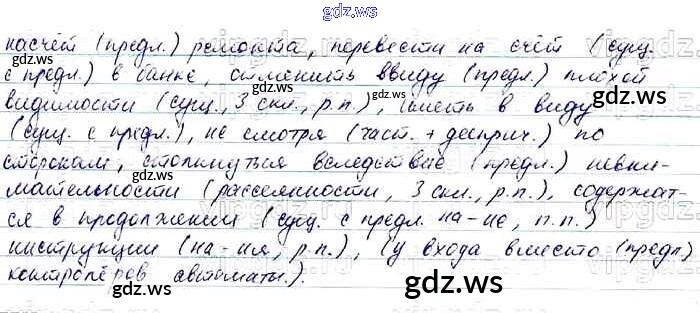 gdz.ws
насчёт (предл.) ремонта, перевести на счёт (сущ.
с предл.) в банке, отменить ввиду (предл.) плохой
видимости (сущ., 3 скл., р.п.), иметь в виду
(сущ. с предл.), не смотря (част. + дееприч.) по
сторонам, столкнуться вследствие (предл.) невни-
мательности (рассеянности, 3 скл., р.п.), содержат-
ся в продолжении (сущ. с предл. на -ие, п.п.)
инструкции (на -ия, р.п.), (у входа вместо (предл.)
контролёров автоматы.).
gdz.ws